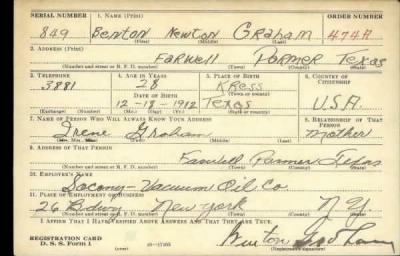 SERIAL NUMBER 1. NAME (Print) ORDER NUMBER
849 Benton Newton Graham 474A
(First) (Middle) (Last)
2. ADDRESS (Print)
Farwell Parmer Texas
(Number and street or R. F. D. number) (Town) (County) (State)
3. TELEPHONE 4. AGE IN YEARS 5. PLACE OF BIRTH 6. COUNTRY OF CITIZENSHIP
3881 28 Kress
DATE OF BIRTH (Town or county)
12-18-1912 Texas U.S.A.
(Exchange) (Number) (Mo.) (Day) (Yr.) (State or country)
7. NAME OF PERSON WHO WILL ALWAYS KNOW YOUR ADDRESS 8. RELATIONSHIP OF THAT PERSON
Irene Graham Mother
(Mr., Mrs., Miss) (First) (Middle) (Last)
9. ADDRESS OF THAT PERSON
Farwell Parmer Texas
(Number and street or R. F. D. number) (Town) (County) (State)
10. EMPLOYER'S NAME
Socony-Vacuum Oil Co.
11. PLACE OF EMPLOYMENT OR BUSINESS
26 Bdwy New York N.Y.
(Number and street or R. F. D. number) (Town) (County) (State)
I AFFIRM THAT I HAVE VERIFIED ABOVE ANSWERS AND THAT THEY ARE TRUE.
REGISTRATION CARD
D. S. S. Form 1 (over) 16-17105
(Registrant's signature)